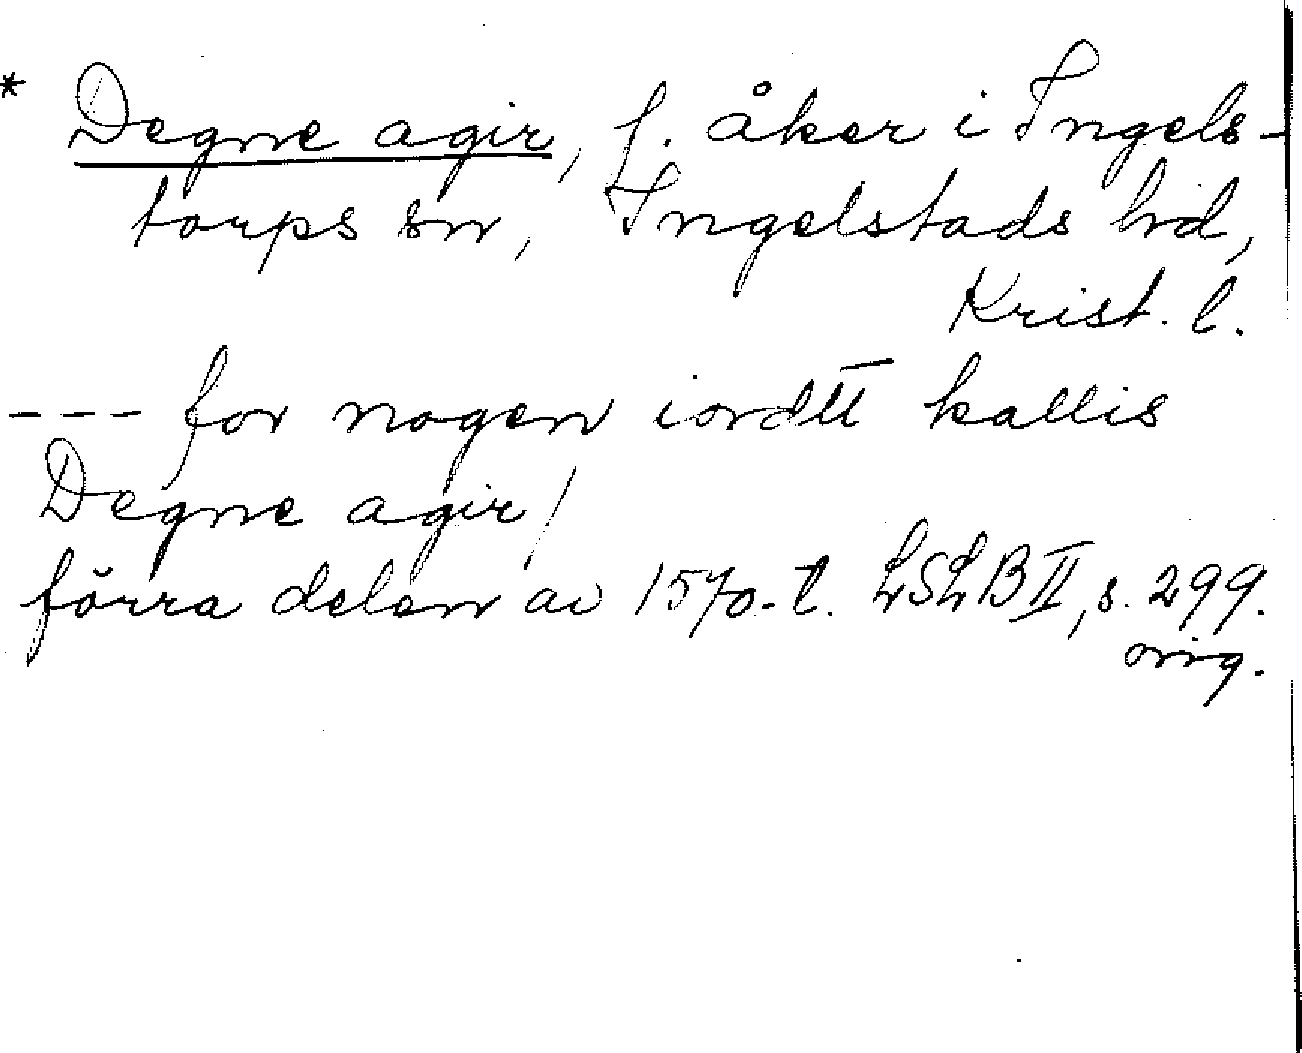 * Degne agir, f. åker i Ingels-
torps sn, Ingelstads hd,
Krist. l.
--- for nogen iordtt kallis
Degne agir/
förra delen av 1570-t. LSLB II, s. 299.
orig.